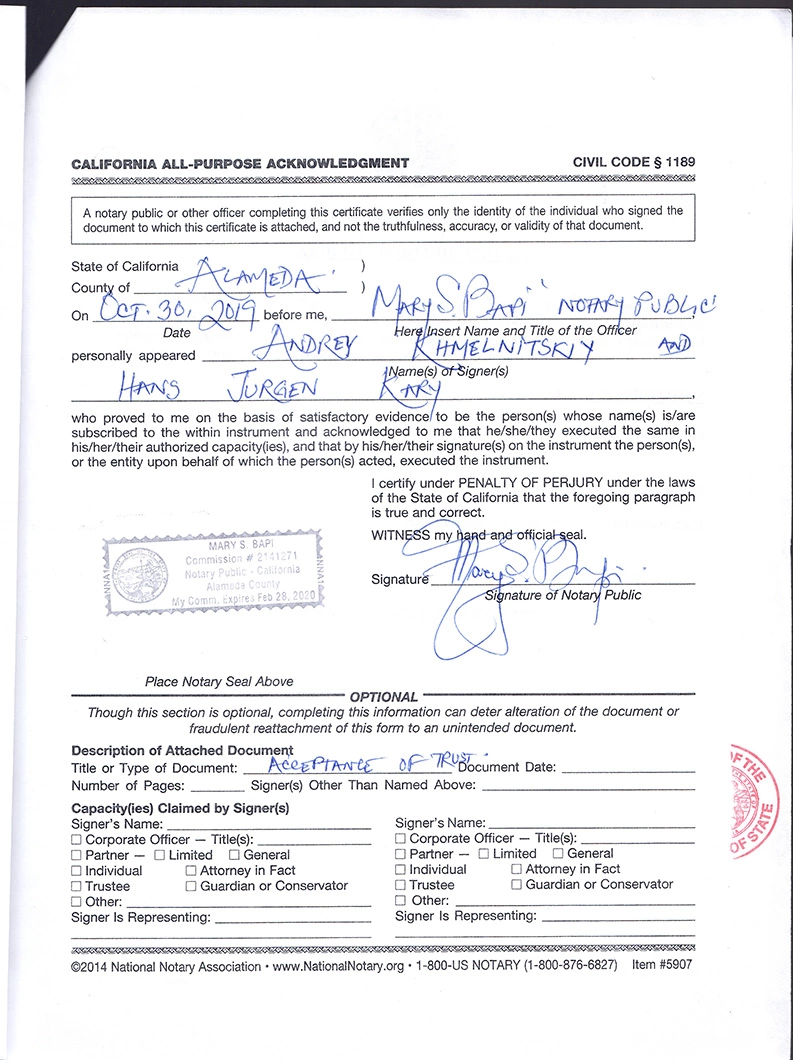 CALIFORNIA ALL-PURPOSE ACKNOWLEDGMENT CIVIL CODE § 1189
A notary public or other officer completing this certificate verifies only the identity of the individual who signed the
document to which this certificate is attached, and not the truthfulness, accuracy, or validity of that document.
State of California )
County of ALAMEDA )
On OCT. 30, 2019 before me, MARY S. BAPI NOTARY PUBLIC,
Date Here Insert Name and Title of the Officer
personally appeared ANDREY KHMELNITSKIY AND
Name(s) of Signer(s)
HANS JURGEN KARY,
who proved to me on the basis of satisfactory evidence to be the person(s) whose name(s) is/are
subscribed to the within instrument and acknowledged to me that he/she/they executed the same in
his/her/their authorized capacity(ies), and that by his/her/their signature(s) on the instrument the person(s),
or the entity upon behalf of which the person(s) acted, executed the instrument.
I certify under PENALTY OF PERJURY under the laws
of the State of California that the foregoing paragraph
is true and correct.
WITNESS my hand and official seal.
MARY S. BAPI
Commission # 2141271
Notary Public - California
Alameda County
My Comm. Expires Feb 28, 2020
Signature Mary S. Bapi
Signature of Notary Public
Place Notary Seal Above
OPTIONAL
Though this section is optional, completing this information can deter alteration of the document or
fraudulent reattachment of this form to an unintended document.
Description of Attached Document
Title or Type of Document: ACCEPTANCE OF TRUST. Document Date:
Number of Pages: Signer(s) Other Than Named Above:
Capacity(ies) Claimed by Signer(s)
Signer's Name: Signer's Name:
Corporate Officer — Title(s): Corporate Officer — Title(s):
Partner — Limited General Partner — Limited General
Individual Attorney in Fact Individual Attorney in Fact
Trustee Guardian or Conservator Trustee Guardian or Conservator
Other: Other:
Signer Is Representing: Signer Is Representing:
OF THE
OF STATE
©2014 National Notary Association • www.NationalNotary.org • 1-800-US NOTARY (1-800-876-6827) Item #5907